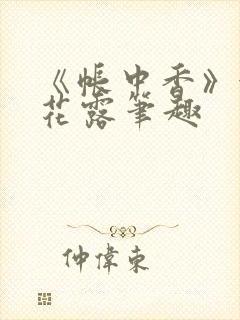 《帳中香》
花露筆趣
仲偉東